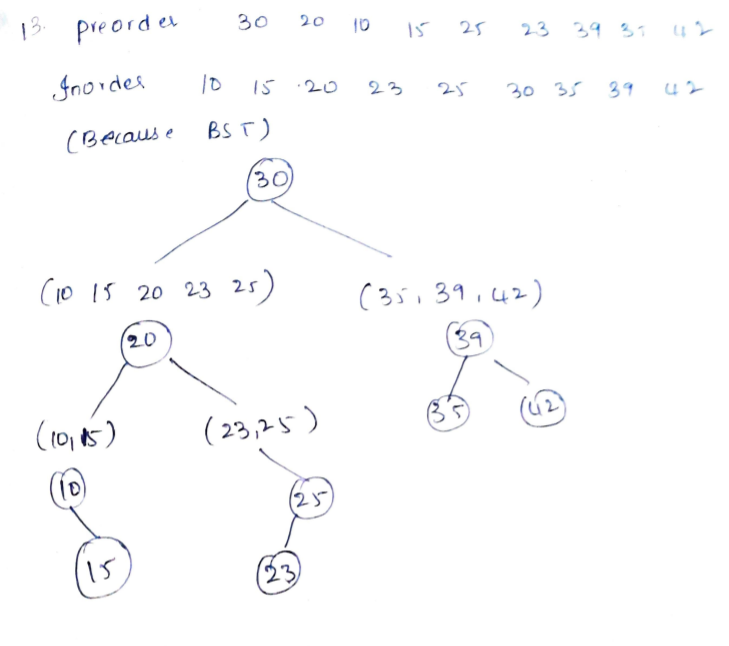 13. Preorder 30 20 10 15 25 23 39 35 42
Inorder 10 15 20 23 25 30 35 39 42
(Because BST)
30
(10 15 20 23 25) (35, 39, 42)
20 39
35 42
(10, 15) (23,25)
10 25
15 23